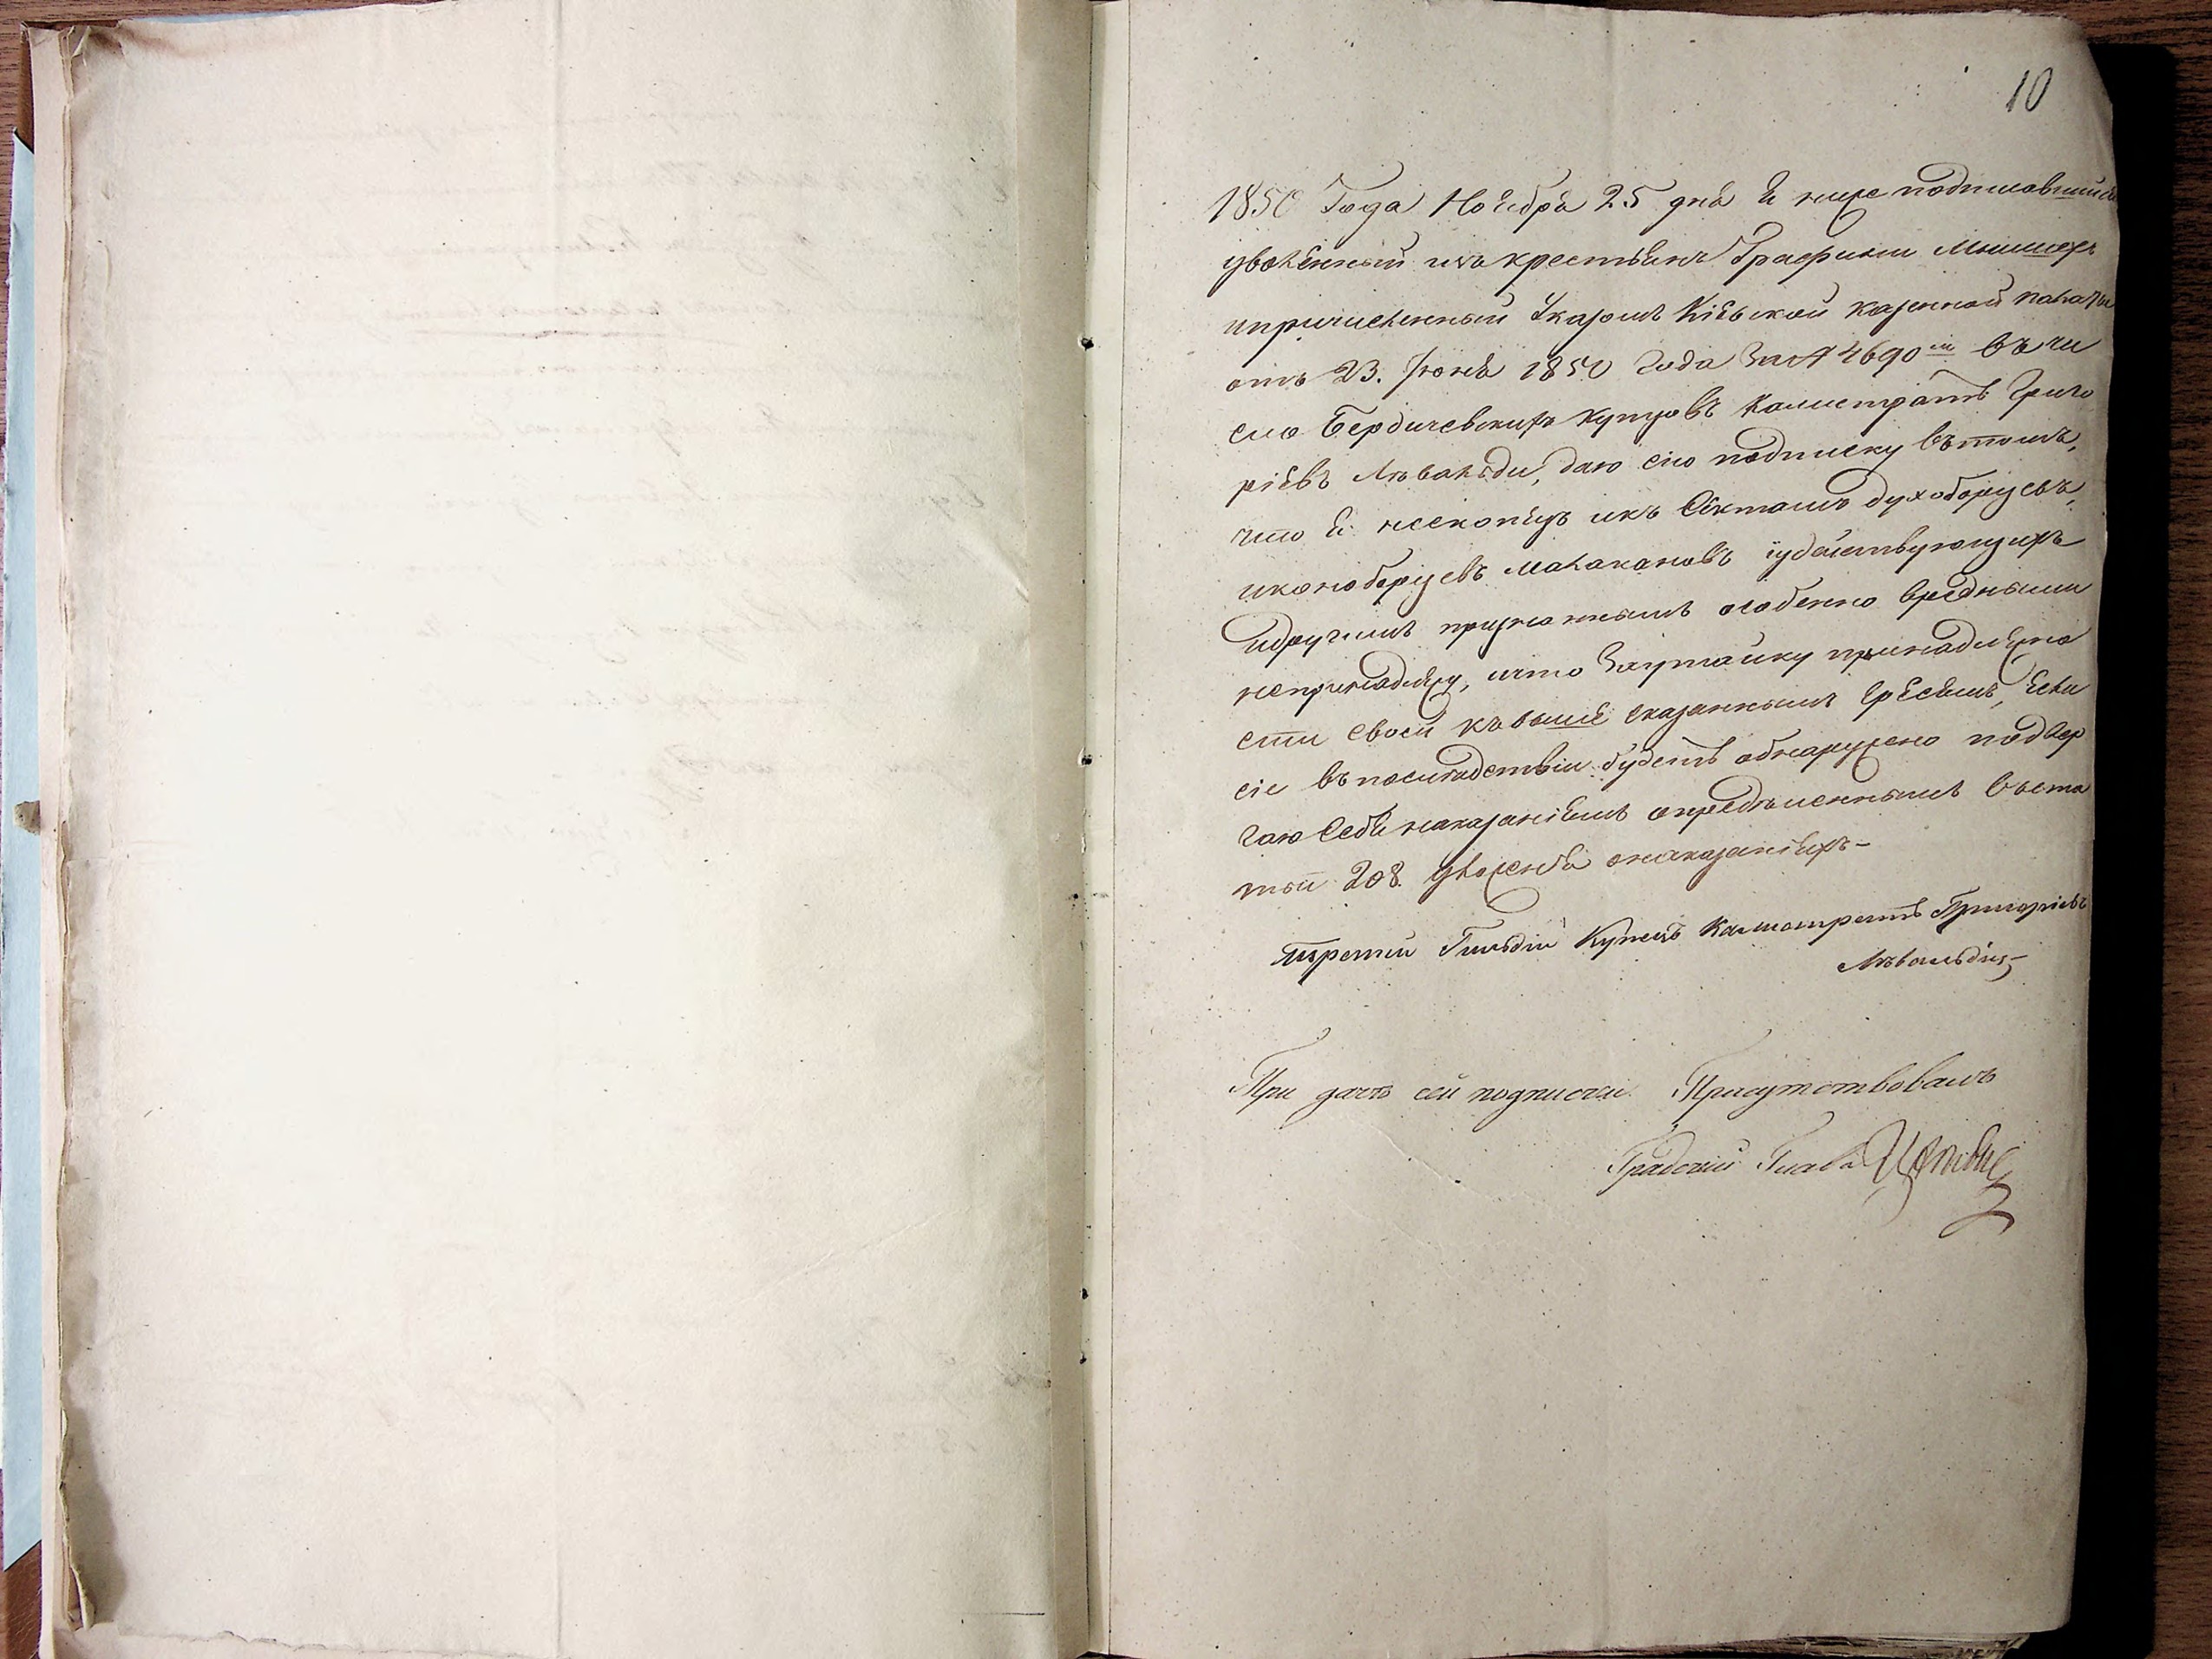 10
1850 Года Ноября 25 дня я ниже подписавшийся
уволенный изъ крестьянъ Графини
ипричисленный Указомъ Кіевской казенной палаты
отъ 23. Іюня 1850 года За № 4690 въ чи
сло Бердичевскихъ купцовъ Калистратъ Григо
ріевъ даю сію подписку вътомъ,
что я нескопецъ икъ Сектамъ духоборцевъ,
иконоборцевъ малакановъ іудействующихъ
идругимъ признаннымъ особенно вредными
непринадлежу, ичто Заутайку принадлежно
сти своей къвыше сказаннымъ Ересямъ, Если
сіе въпослѣдствіи будетъ обнаружено подвер
гаю Себя наказаніямъ опредѣленнымъ въста
тьи 208. уложенія онаказаніяхъ-
Третей Гильдіи Купецъ Калистратъ Григоріевъ
При дачѣ сей подписки Присутствовалъ
Градскій Глава